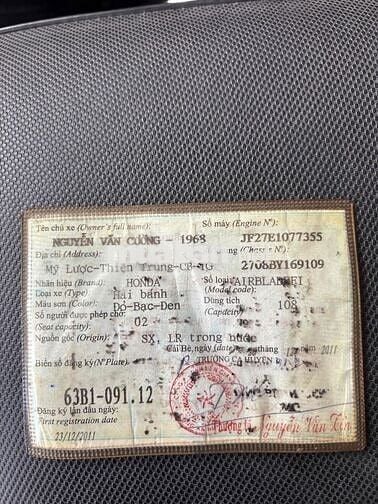 Tên chủ xe (Owner's full name): Số máy (Engine Nº):
NGUYỄN VĂN CƯỜNG - 1968 JF27E1077355
Địa chỉ (Address): ng (Chass s Nº):
Mỹ Lược-Thiện Trung-CB-TG 2708BY169109
Nhãn hiệu (Brand): HONDA Số loại: AIRBLADE
Loại xe (Type): Hai bánh (Model code):
Màu sơn (Color): Đỏ-Bạc-Đen Dung tích 108
Số người được phép chở: 02 (Capacity)
(Seat capacity)
Nguồn gốc (Origin): SX, LR trong nước
Cái Bè, ngày (date) tháng 2011
Biển số đăng ký (Nº Plate) TRƯỞNG CA HUYỆN
63B1-091.12
Đăng ký lần đầu ngày:
First registration date
23/12/2011
Thượng tá Nguyễn Văn